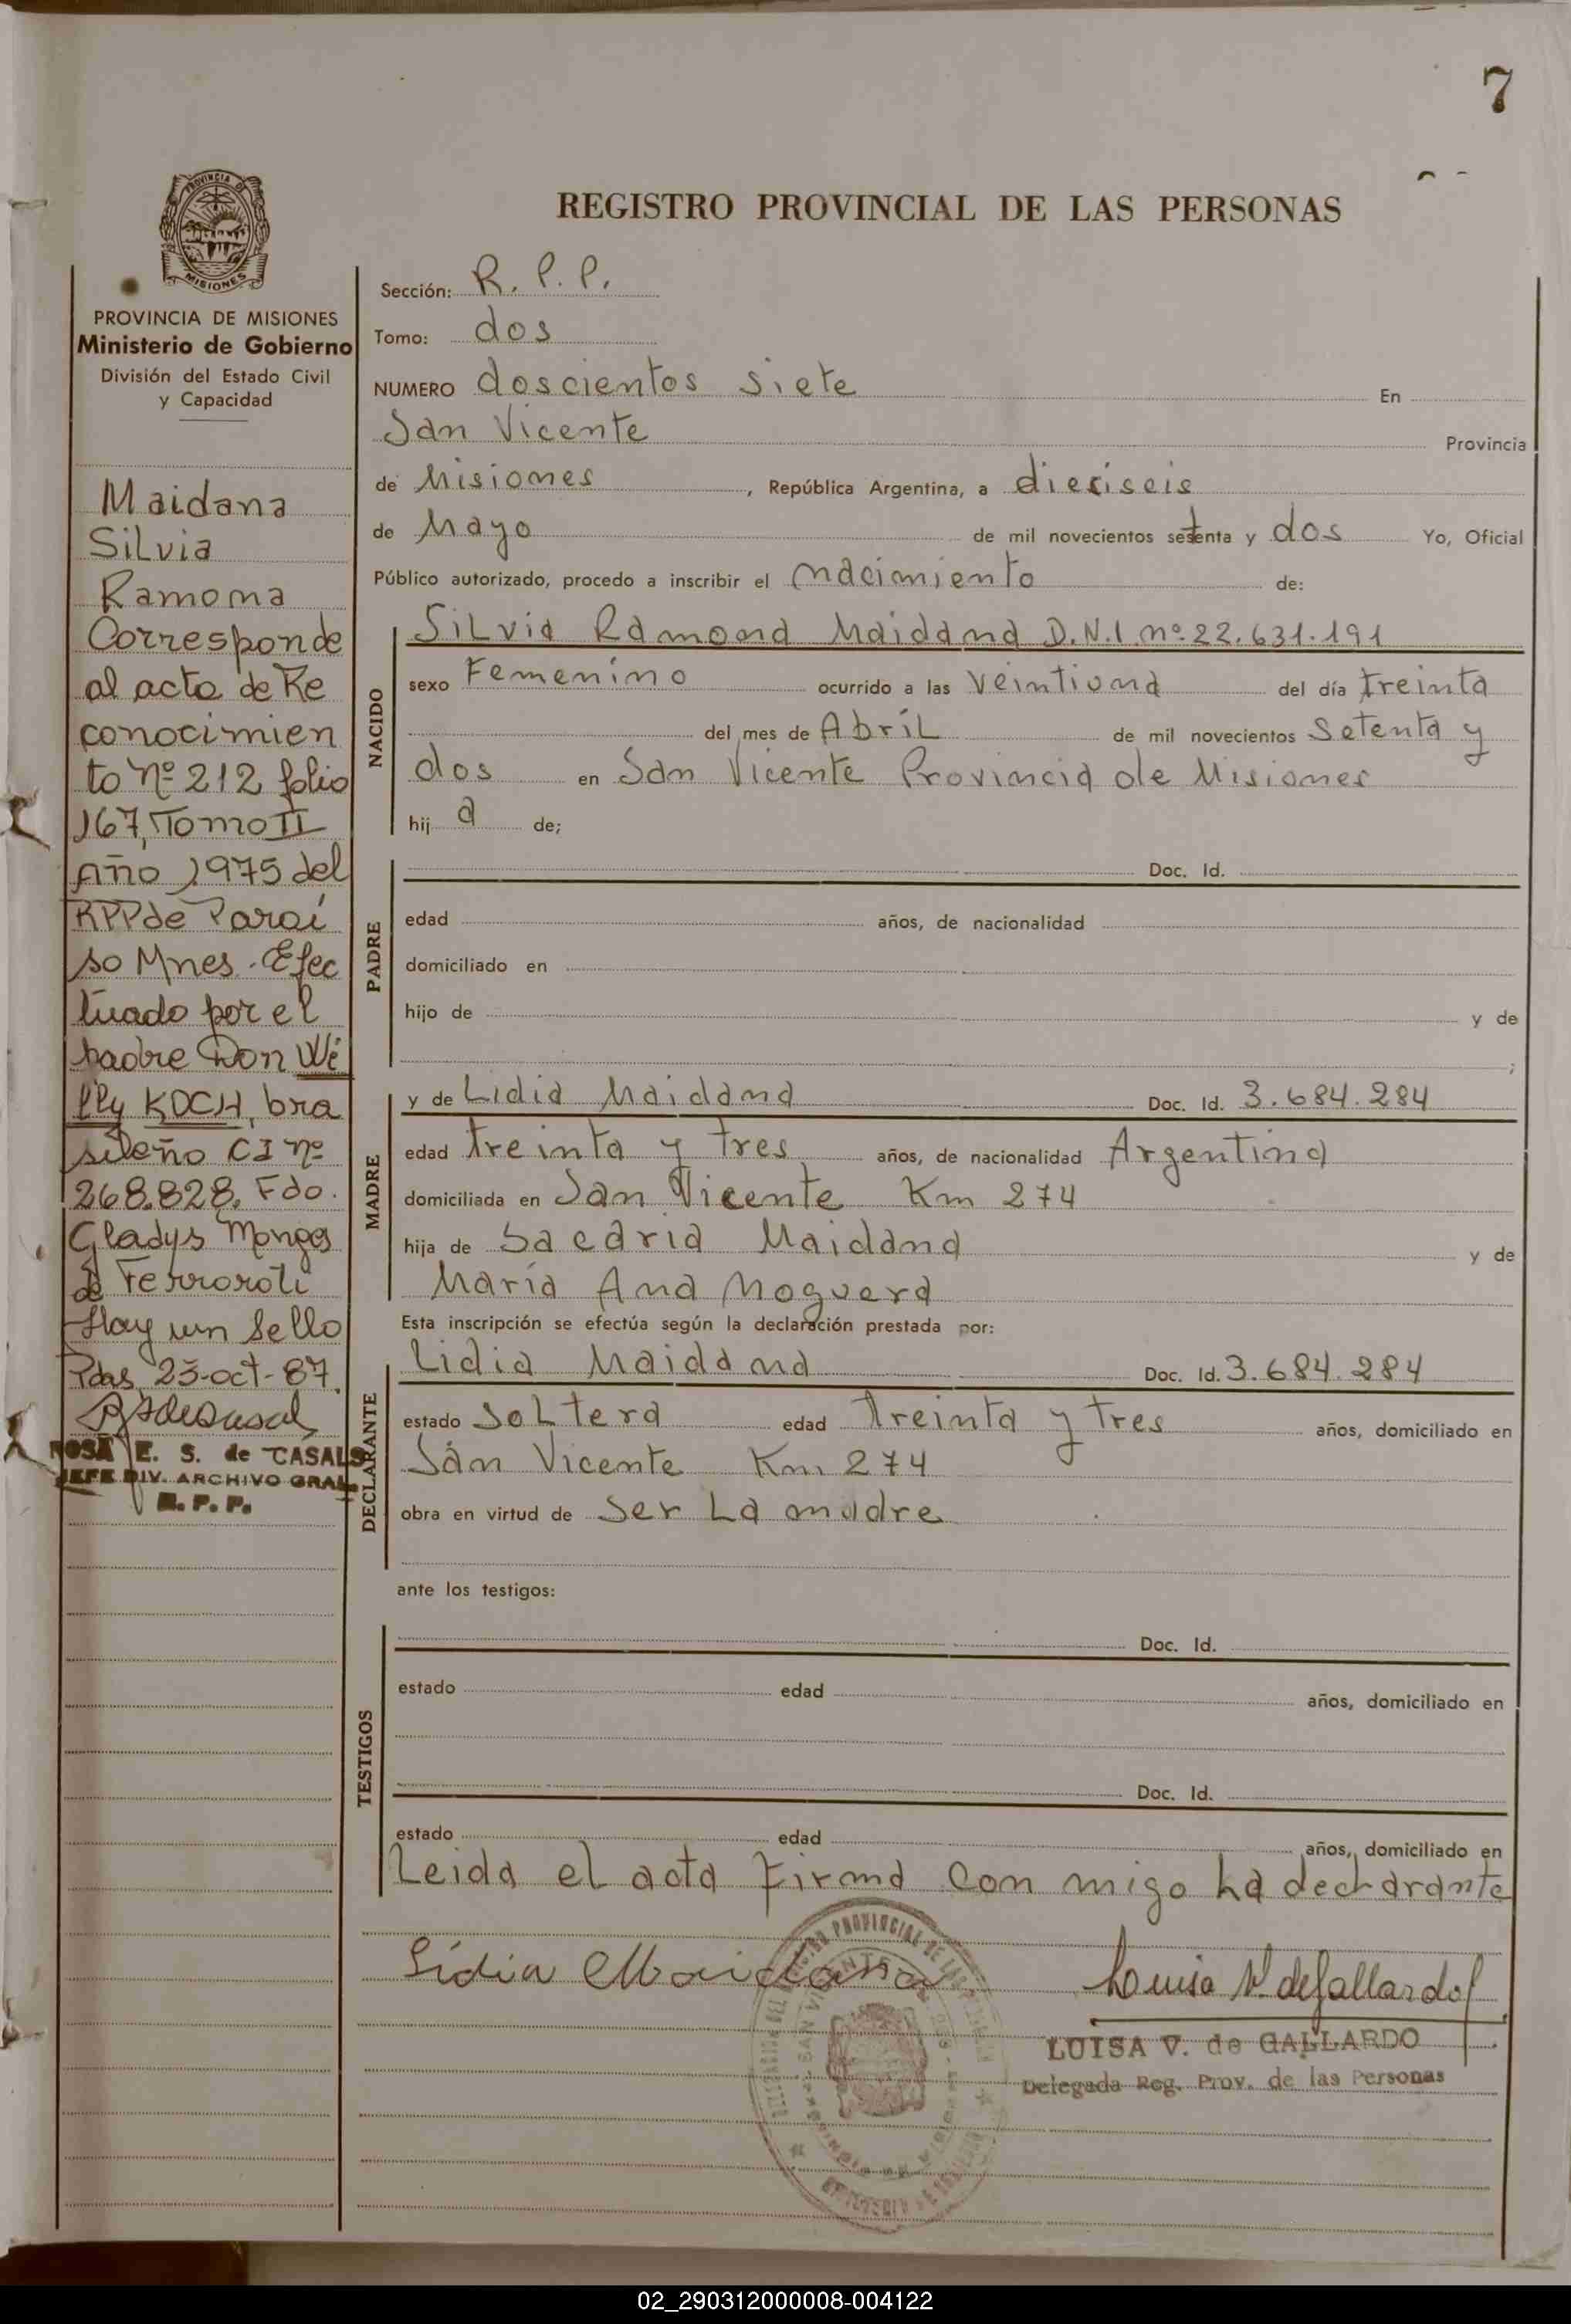 7
PROVINCIA DE
MISIONES
REGISTRO PROVINCIAL DE LAS PERSONAS
PROVINCIA DE MISIONES
Ministerio de Gobierno
División del Estado Civil
y Capacidad
Maidana
Silvia
Ramona
Corresponde
al acta de Re
conocimien
to Nº 212 folio
167, Tomo II
Año 1975 del
RPP de Paraí
so Mnes. Efec
tuado por el
padre Don Wi
lly KOCH, bra
sileño CI nº
268.828. Fdo.
Gladys
de
Hay un Sello
Pdas, 23-oct-87.
ROSA E. S. de CASALS
JEFE DIV. ARCHIVO GRAL.
R. P. P.
Sección: R. P. P.
Tomo: dos
NUMERO doscientos siete En
San Vicente Provincia
de Misiones, República Argentina, a dieciseis
de Mayo de mil novecientos setenta y dos Yo, Oficial
Público autorizado, procedo a inscribir el nacimiento de:
NACIDO
Silvia Ramona Maidana D.N.I. nº 22.631.191
sexo Femenino ocurrido a las veintiuna del día treinta
del mes de Abril de mil novecientos Setenta y
dos en San Vicente Provincia de Misiones
hij a de;
PADRE
Doc. Id.
edad años, de nacionalidad
domiciliado en
hijo de y de
;
MADRE
y de Lidia Maidana Doc. Id. 3.684.284
edad treinta y tres años, de nacionalidad Argentina
domiciliada en San Vicente Km 274
hija de Sacaria Maidana y de
María Ana Noguera
Esta inscripción se efectúa según la declaración prestada por:
DECLARANTE
Lidia Maidana Doc. Id. 3.684.284
estado Soltera edad treinta y tres años, domiciliado en
San Vicente Km 274
obra en virtud de Ser La madre
ante los testigos:
TESTIGOS
Doc. Id.
estado edad años, domiciliado en
Doc. Id.
estado edad años, domiciliado en
Leida el acta firma con migo La declarante
Lidia Maidana
Luisa V. de Gallardo
LUISA V. de GALLARDO
Delegada Reg. Prov. de las Personas
02_290312000008-004122